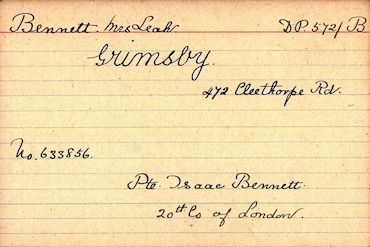 Bennett. Mrs Leah DP. 572/B
Grimsby.
472 Cleethorpe Rd.
No. 633856.
Pte. Isaac Bennett.
20th Co of London.